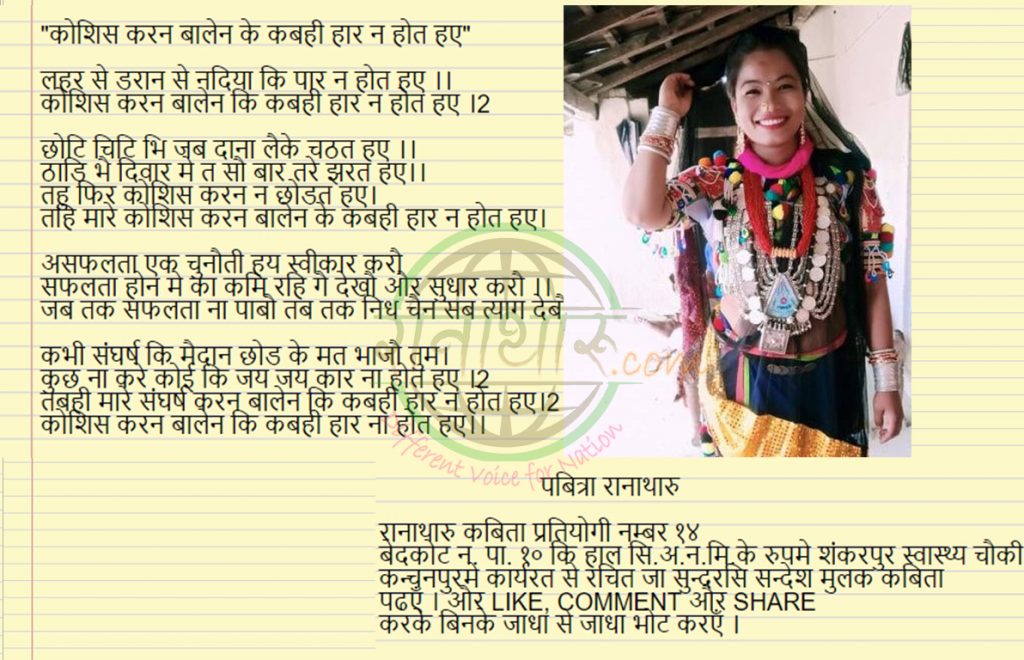 "कोशिस करन बालेन के कबही हार न होत हए"
लहर से डरान से नदिया कि पार न होत हए ।।
कोशिस करन बालेन कि कबही हार न होत हए ।2
छोटि चिटि भि जब दाना लैके चठत हए ।।
ठाडि भै दिवार मे त सौ बार तरे झरत हए।।
तहु फिर कोशिस करन न छोडत हए।
तहि मारे कोशिस करन बालेन के कबही हार न होत हए।
असफलता एक चुनौती हय स्वीकार करौ
सफलता होन मे का कमि रहि गै देखौ और सुधार करौ ।।
जब तक सफलता ना पाबौ तब तक निधं चैन सब त्याग देबै
कभी संघर्ष कि मैदान छोड के मत भाजौ तुम।
कुछ ना करे कोई कि जय जय कार ना होत हए ।2
तबही मारे संघर्ष करन बालेन कि कबही हार न होत हए।2
कोशिस करन बालेन कि कबही हार ना होत हए।।
रानाथारु.com
Different Voice for Nation
पबित्रा रानाथारु
रानाथारु कबिता प्रतियोगी नम्बर १४
बेदकोट न. पा. १० कि हाल सि.अ.न.मि के रुपमे शंकरपुर स्वास्थ्य चौकी
कन्चनपुरमे कार्यरत से रचित जा सुन्दरसि सन्देश मुलक कबिता
पढएँ । और LIKE, COMMENT और SHARE
करके बिनके जाधा से जाधा भोट करएँ ।